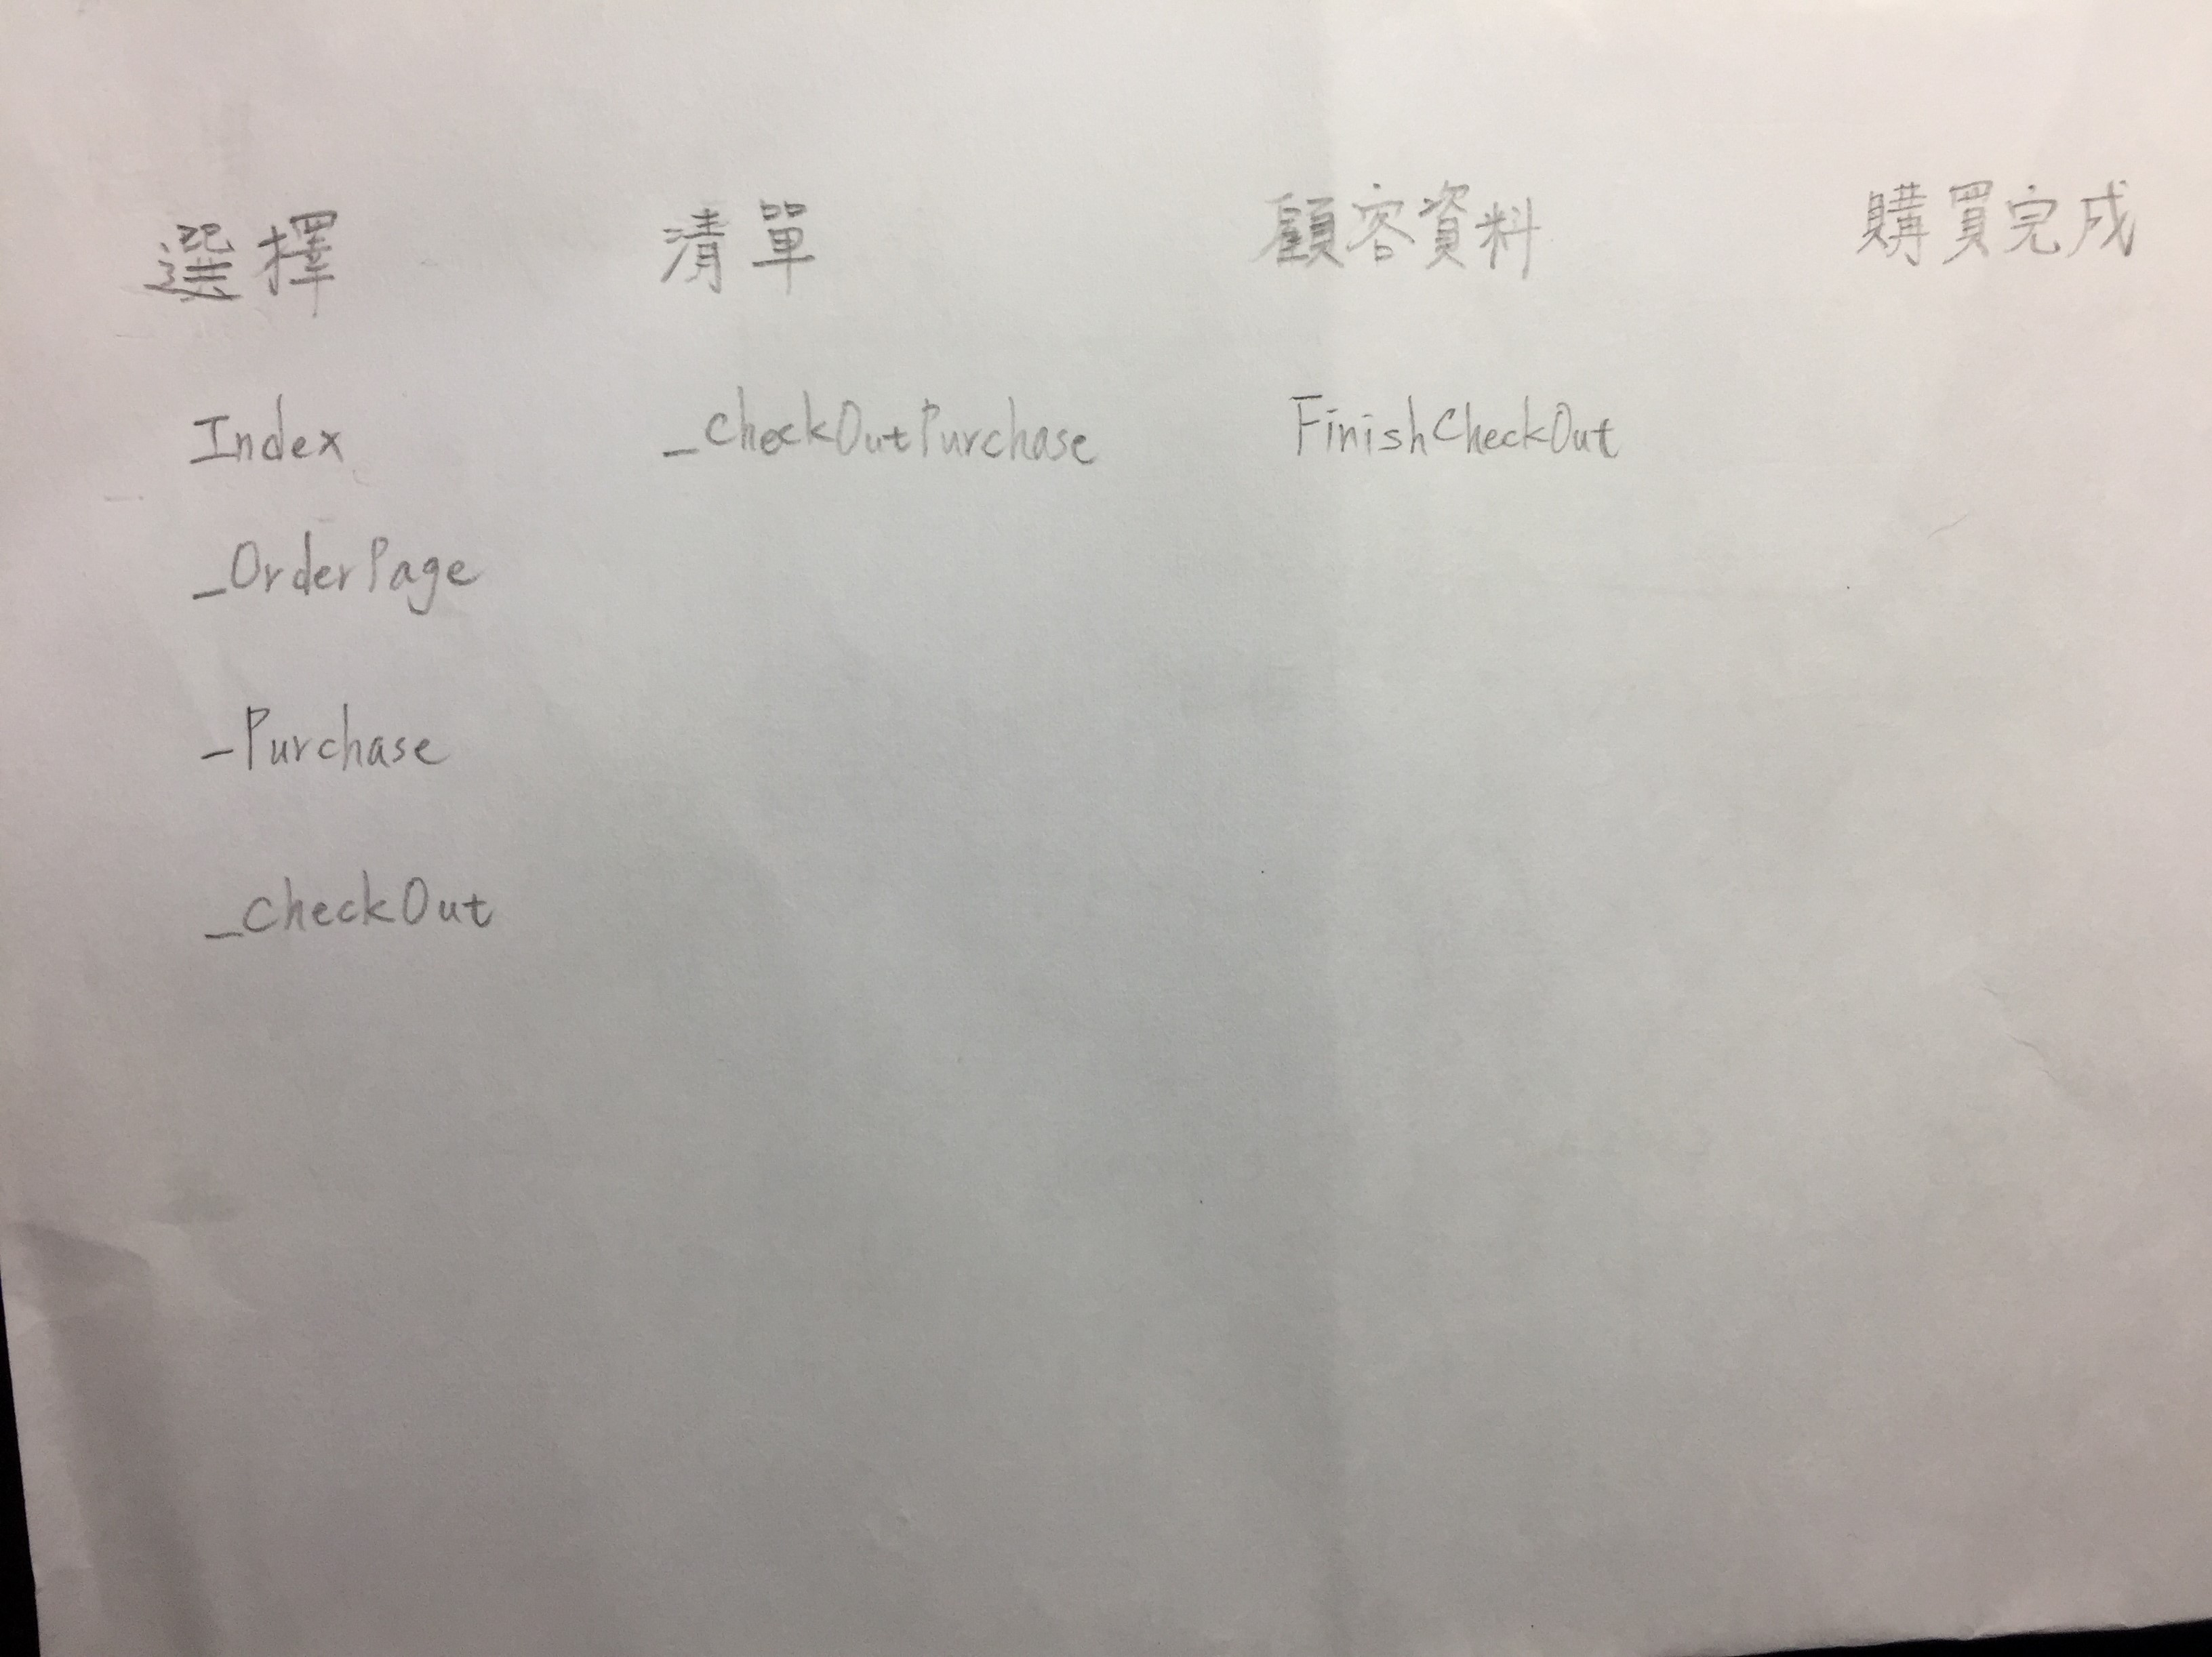 選擇 清單 顧客資料 購買完成
Index _CheckOutPurchase FinishCheckOut
_OrderPage
_Purchase
_CheckOut